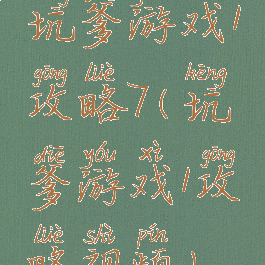 坑爹游戏1
gōng lüè kēng
攻略7(坑
diē yóu xì gōng
爹游戏1攻
lüè shì pín
略视频)